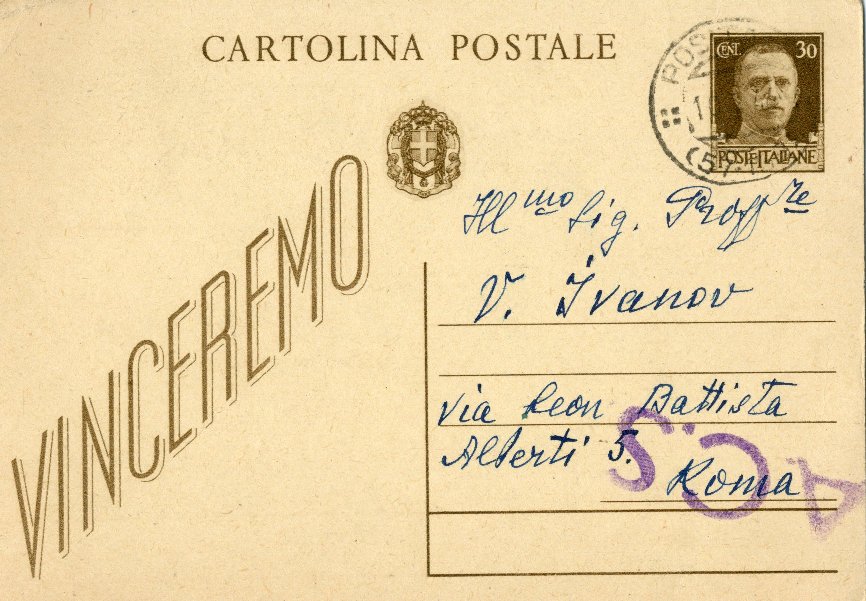 CARTOLINA POSTALE
CENT. 30
POSTE ITALIANE
VINCEREMO
Ill^mo Sig. Proff^re
V. Ivanov
via Leon Battista
Alberti 5.
Roma